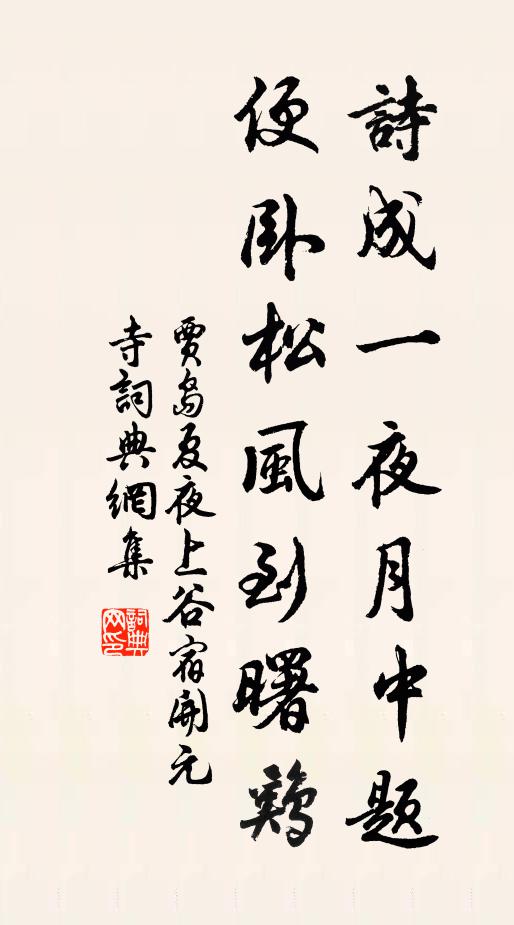 詩成一夜月中題
便臥松風到曙鷄
賈島夏夜上谷宿開元
寺詞典網集
詞典
网印